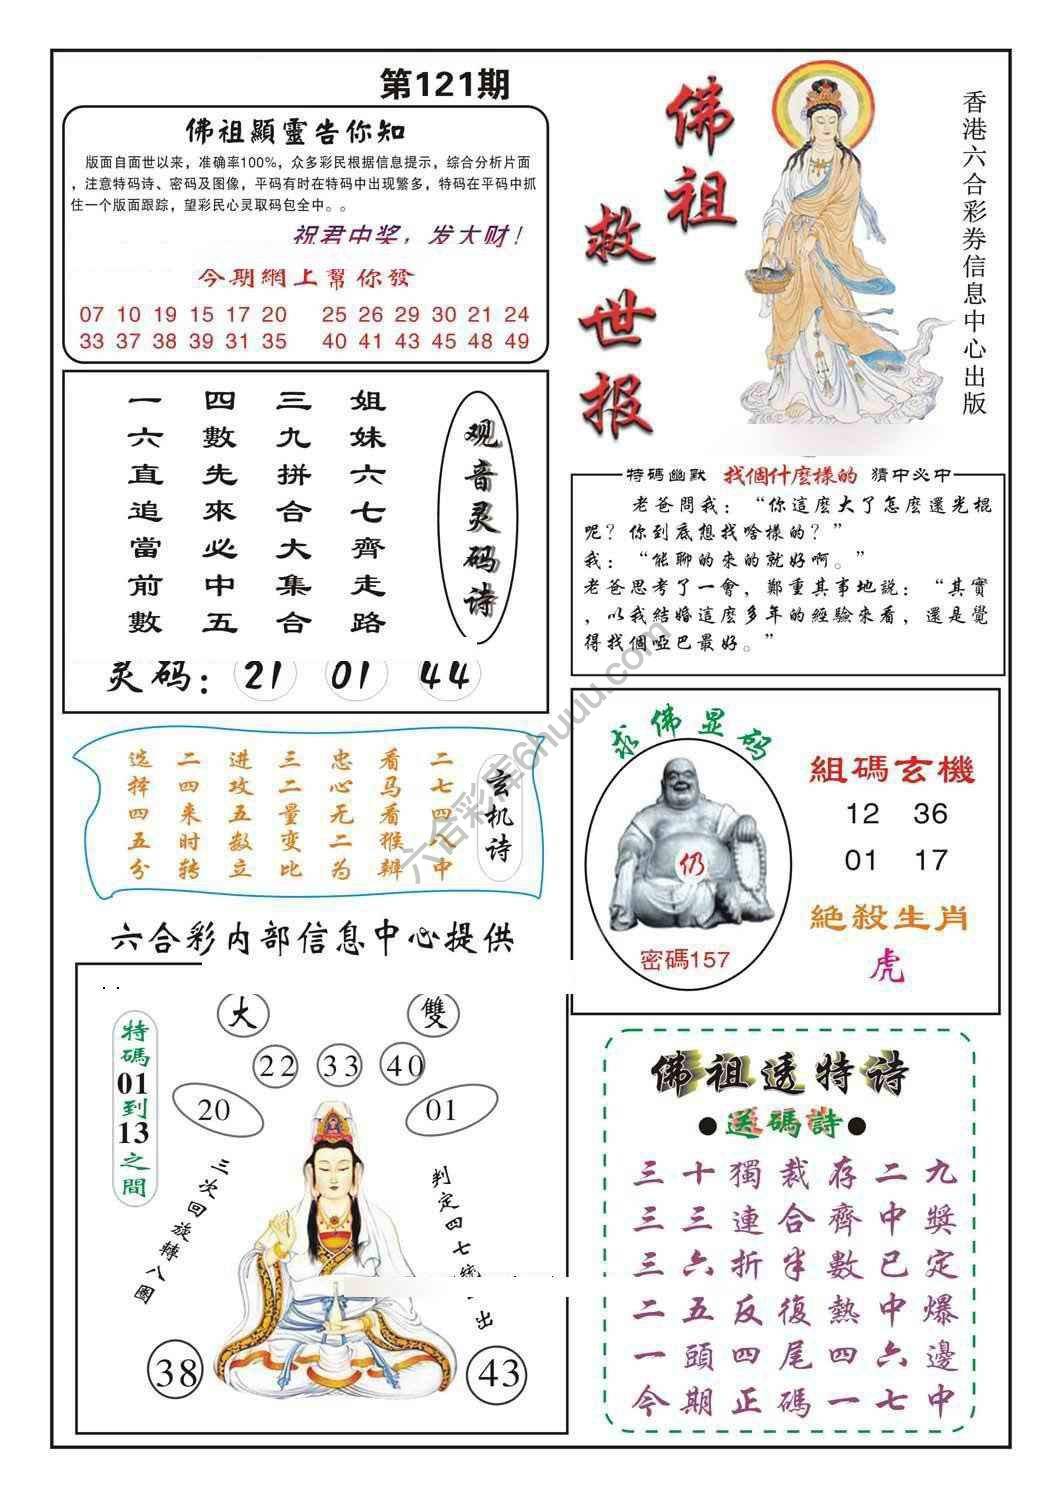 第121期
佛祖顯靈告你知
版面自面世以来，准确率100%，众多彩民根据信息提示，综合分析片面
，注意特码诗、密码及图像，平码有时在特码中出现繁多，特码在平码中抓
住一个版面跟踪，望彩民心灵取码包全中。。
祝君中奖，发大财！
今期網上幫你發
07 10 19 15 17 20 25 26 29 30 21 24
33 37 38 39 31 35 40 41 43 45 48 49
佛祖
救世报
香港六合彩券信息中心出版
观音灵码诗
姐妹六七齊走路
三九拼合大集合
四數先來必中五
一六直追當前數
灵码：21 01 44
特碼幽默 找個什麼樣的 猜中必中
老爸問我：“你這麼大了怎麼還光棍
呢？你到底想找啥樣的？”
我：“能聊的來的就好啊。”
老爸思考了一會，鄭重其事地説：“其實
，以我結婚這麼多年的經驗來看，還是覺
得找個啞巴最好。”
玄机诗
二七四八中
看马看猴辨
忠心无二为
三二量变比
进攻五数立
二四来时转
选择四五分
求佛显码
仍
密碼157
組碼玄機
12 36
01 17
絕殺生肖
虎
六合彩内部信息中心提供
特碼01到13之間
大 雙
22 33 40
20 01
三次回旋轉八圈
判定四七統
出
38 43
佛祖透特诗
●送碼詩●
三十獨裁存二九
三三連合齊中獎
三六折半數已定
二五反復熱中爆
一頭四尾四六邊
今期正碼一七中
六合彩库6huuu.com